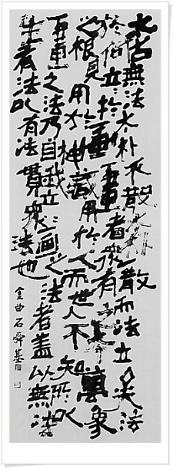 太古無法太朴不散太朴一散而法立矣法
於何立立於一畫一畫者衆有之本萬象
之根見用於神藏用於人而世人不知所以
一畫之法乃自我立立一畫之法者蓋以無法
生有法以有法貫衆法也